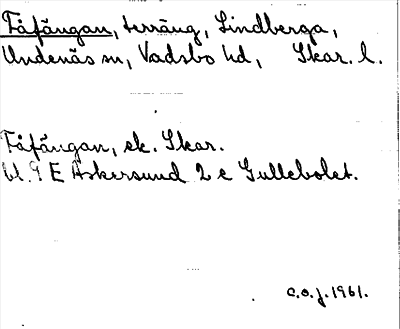 Fåfängan, terräng, Lindberga,
Undenäs sn, Vadsbo hd, Skar. l.
Fåfängan, ek. Skar.
bl. 9 E Askersund 2 c Gullebolet.
C.O.J. 1961.